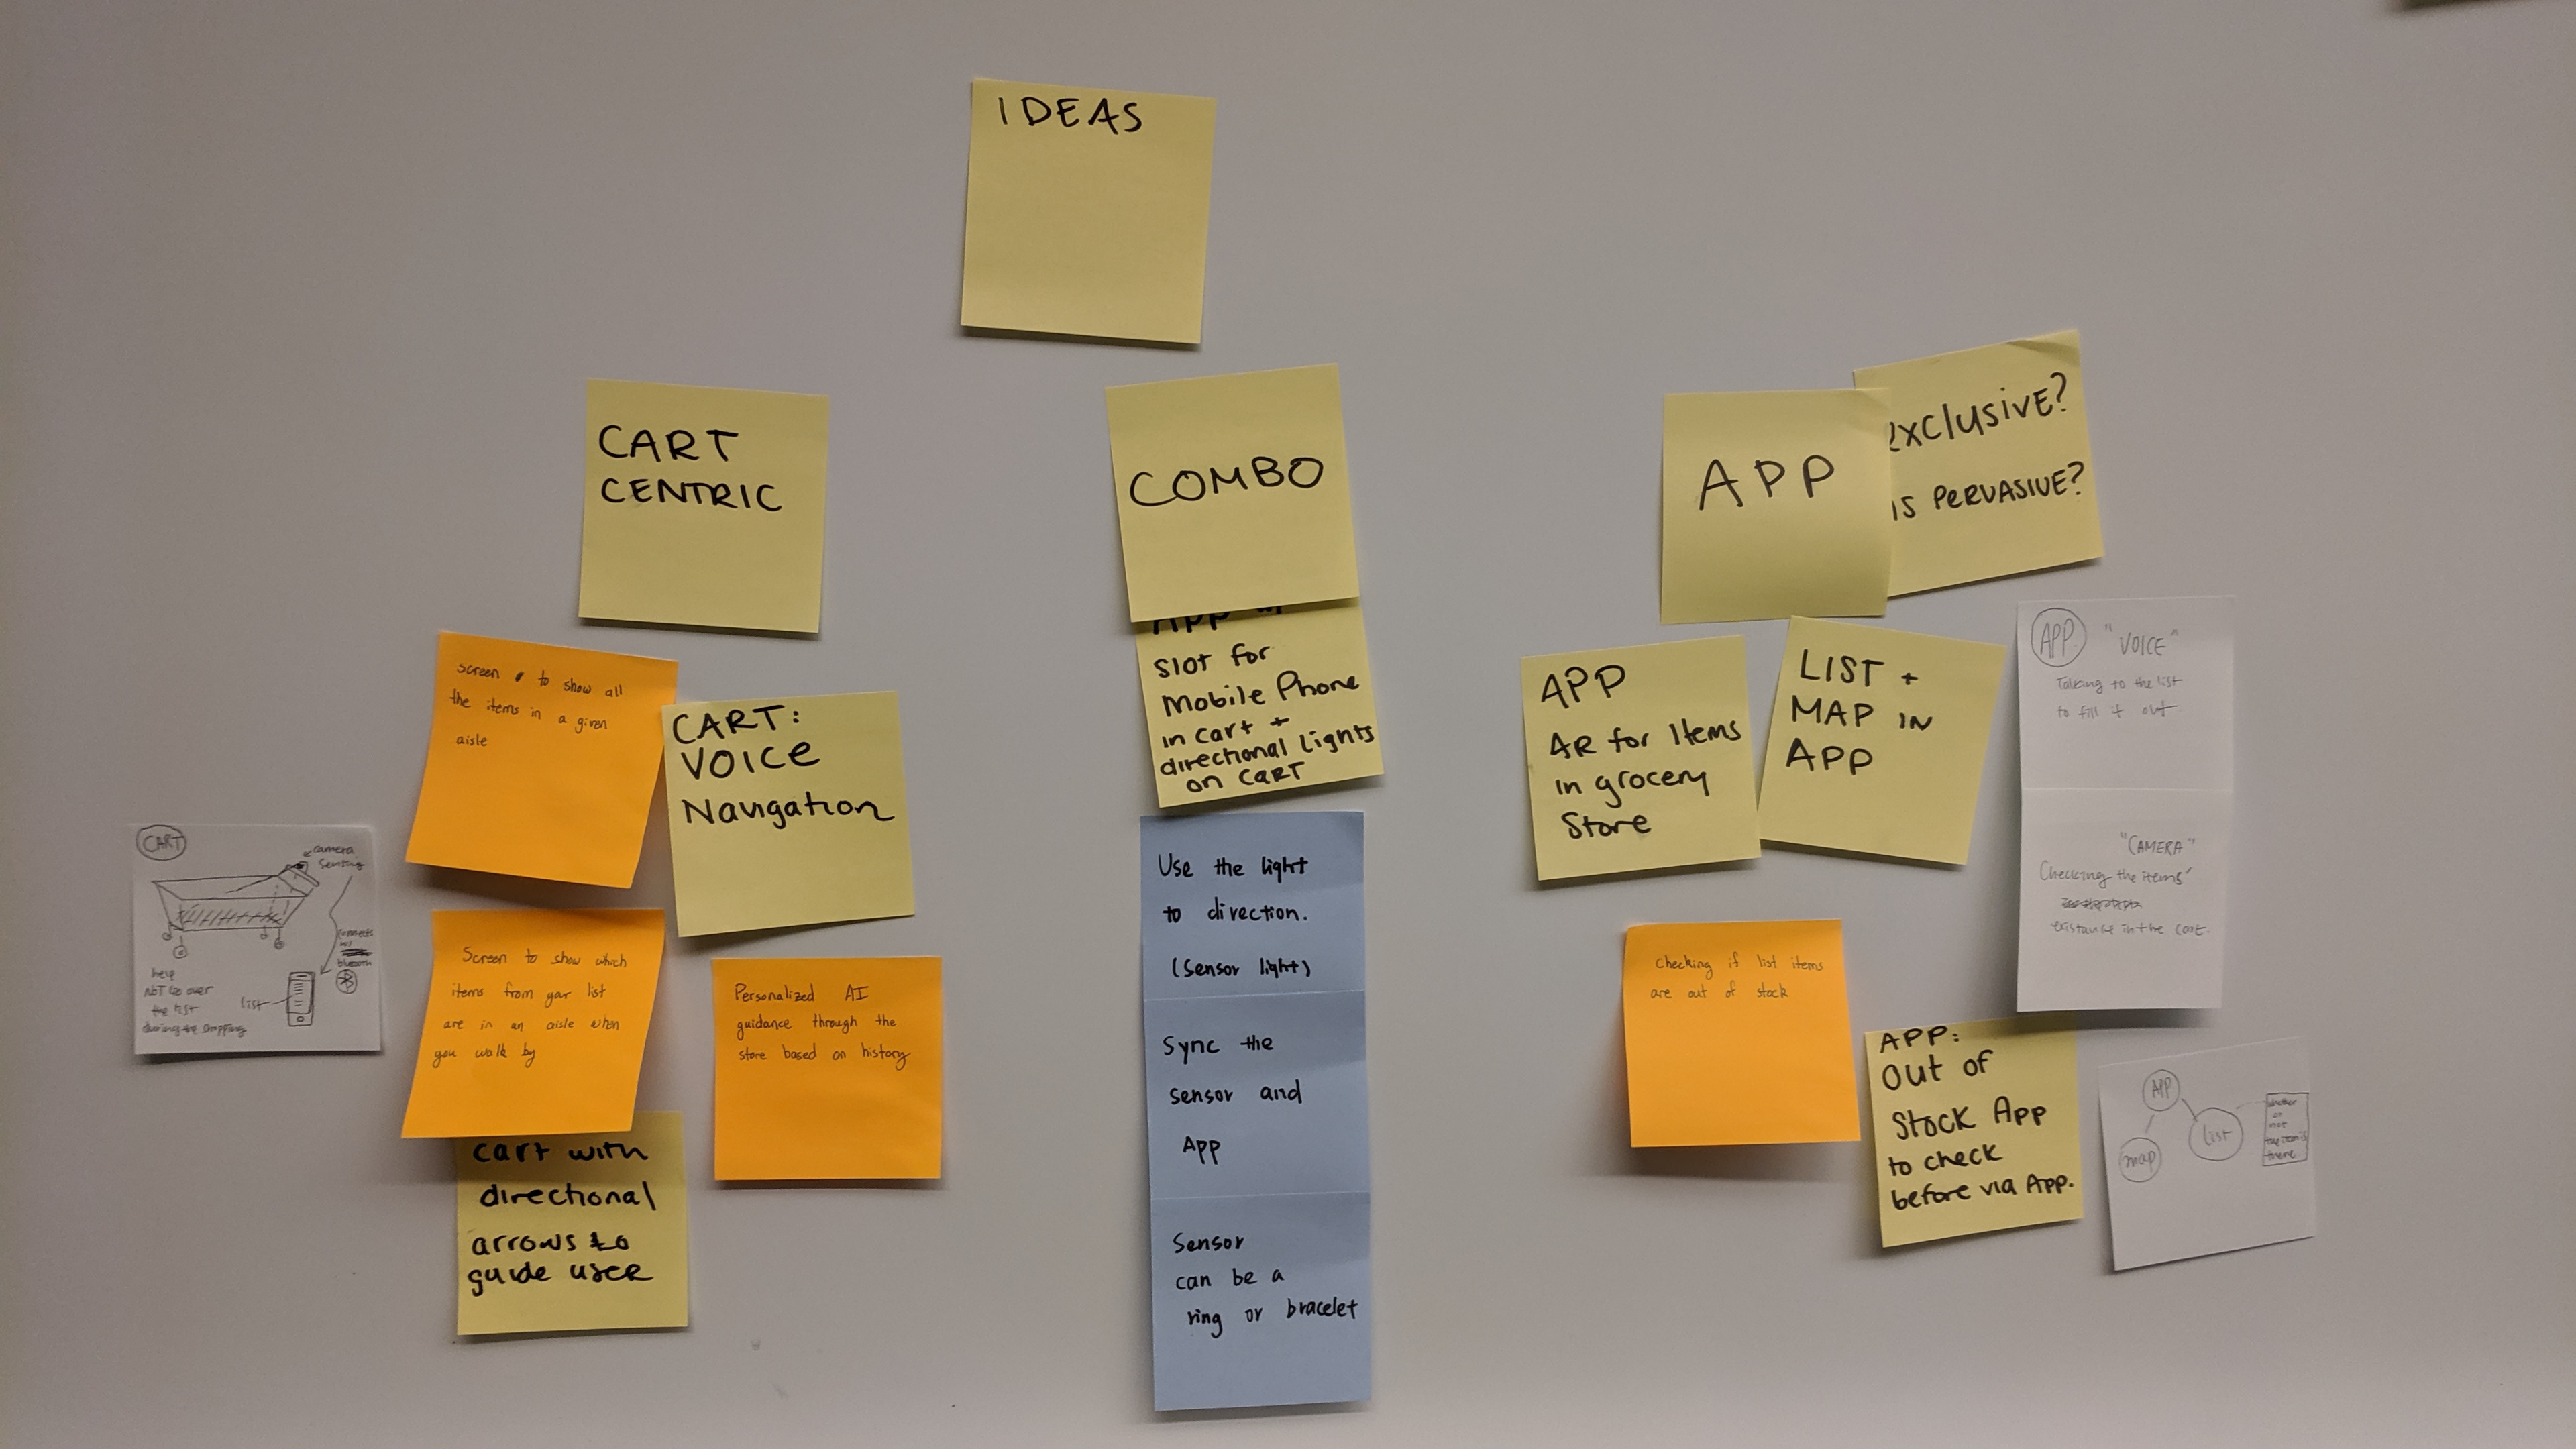 IDEAS
CART
CENTRIC
COMBO
APP
Exclusive?
IS PERVASIVE?
Screen to show all
the items in a given
aisle
CART:
VOICE
Navigation
CART
camera
sensing
connects
w/
list
help
NOT go over
the list
during the shopping
Screen to show which
items from your list
are in an aisle when
you walk by
Personalized AI
guidance through the
store based on history
cart with
directional
arrows to
guide user
Slot for
Mobile Phone
in cart +
directional lights
on CART
Use the light
to direction.
(Sensor light)
Sync the
sensor and
App
Sensor
can be a
ring or bracelet
APP
AR for Items
in grocery
Store
LIST +
MAP IN
APP
APP "VOICE"
Talking to the list
to fill it out
"CAMERA"
Checking the items'
existance in the cart.
Checking if list items
are out of stock
APP:
Out of
Stock App
to check
before via App.
APP
map
list
whether
or
not
the item is
there